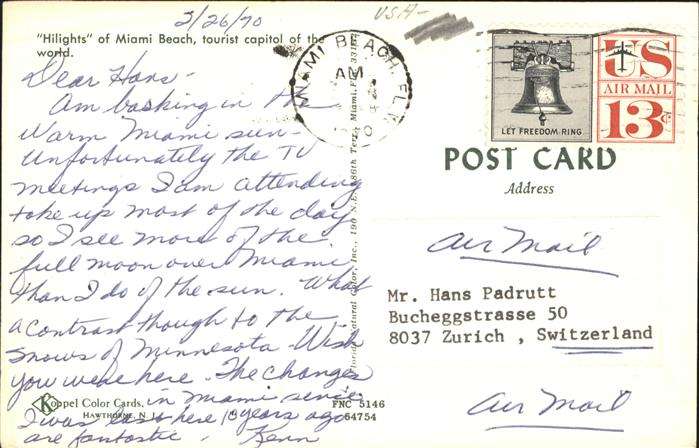 3/26/70
USA-
"Hilights" of Miami Beach, tourist capitol of the
world.
Dear Hans -
Am basking in the
warm Miami sun -
Unfortunately the TV
meetings I am attending
take up most of the day
so I see more of the
full moon over Miami
than I do of the sun. What
a contrast though to the
snows of Minnesota. Wish
you were here. The changes
in Miami since
I was last here 10 years ago
are fantastic.
Koppel Color Cards,
HAWTHORNE, N. J.
FNC 5146
64754
Florida Natural Color, Inc., 190 N.E. 186th Terr., Miami, Fla. 331
MIAMI BEACH, FLA.
AM
LET FREEDOM RING
US
AIR MAIL
13c
POST CARD
Address
Air Mail
Mr. Hans Padrutt
Bucheggstrasse 50
8037 Zurich , Switzerland
Air Mail